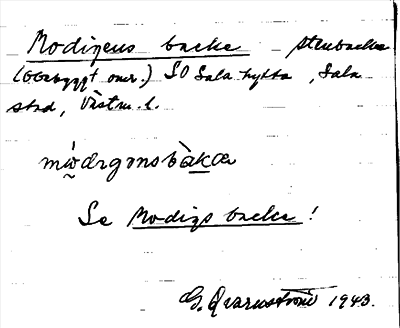 Modigens backe stenbacke
(obebyggt omr.) SO Sala hytta, Sala
stad, Västm. l.
Se Modigs backe!
G. Qvarnström 1943.